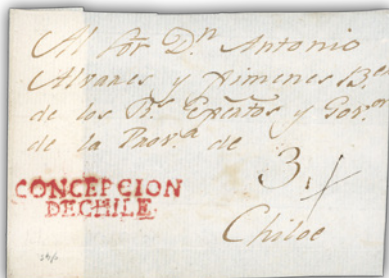 Al Sor Dn Antonio
Alvares y Ximenes B.er
de los Rs Exercitos y Gor.or
de la Prov.a de
3.
CONCEPCION
DECHILE
Chiloe